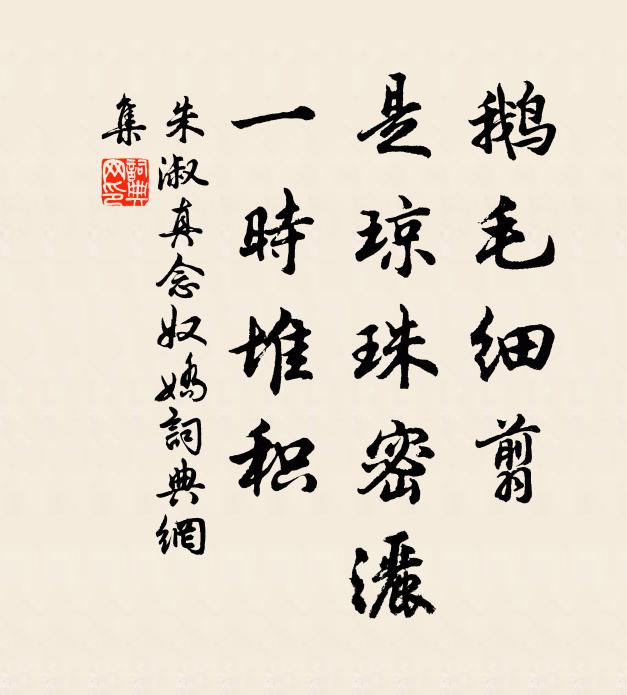 鹅毛细翦
是琼珠密灑
一時堆积
朱淑真念奴嬌詞典網
集
詞典網印